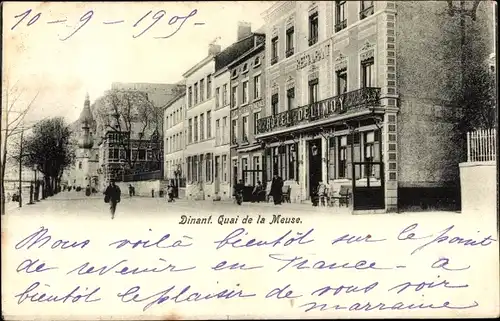 10-9-1905-
RESTAURANT
HOTEL DELIMOY
Dinant. Quai de la Meuse.
Nous voilà bientôt sur le point
de revenir en France - à
bientôt le plaisir de vous voir
marraine